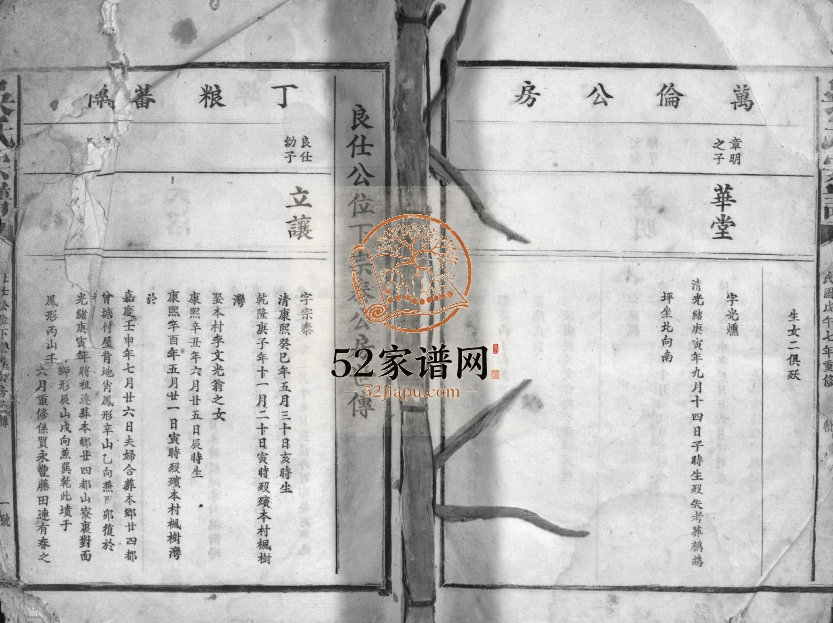 萬倫公房
章明
之子
華堂
生女二俱歿
字光燻
清光緒庚寅年九月十四日子時生歿失考葬鷓鴣
坪坐北向南
良仕公位下崇泰公房
傳
丁粮蕃
良仕
幼子
立讓
字宗泰
清康熙癸巳年五月三十日亥時生
乾隆庚子年十一月二十日寅時歿殯本村楓樹
灣
娶本村李文光翁之女
康熙辛丑年六月廿五日辰時生
康熙辛酉年五月廿一日寅時歿殯本村楓樹灣
於
嘉慶壬申年七月廿六日夫婦合葬本鄉廿四都
曾塘村屋背地肖鳳形辛山乙向兼酉卯復於
光緒庚寅年將祖遷葬本鄉廿四都山寮裏對面
獅形辰山戌向兼巽乾此墳于
鳳形丙山壬
六月重修係買永豐藤田連有春之
一號
52家谱网
52jiapu.com